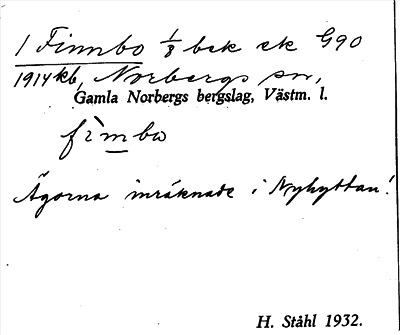 1 Finnbo 1/8 bsk sk G90
1914 kb, Norbergs sn,
Gamla Norbergs bergslag, Västm. l.
fìmbω
Ägorna inräknade i Nyhyttan!
H. Ståhl 1932.